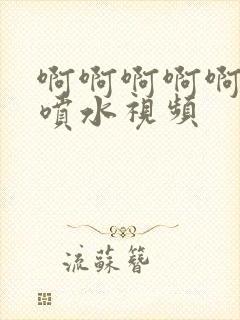 啊啊啊啊啊
噴水視頻
流蘇簪